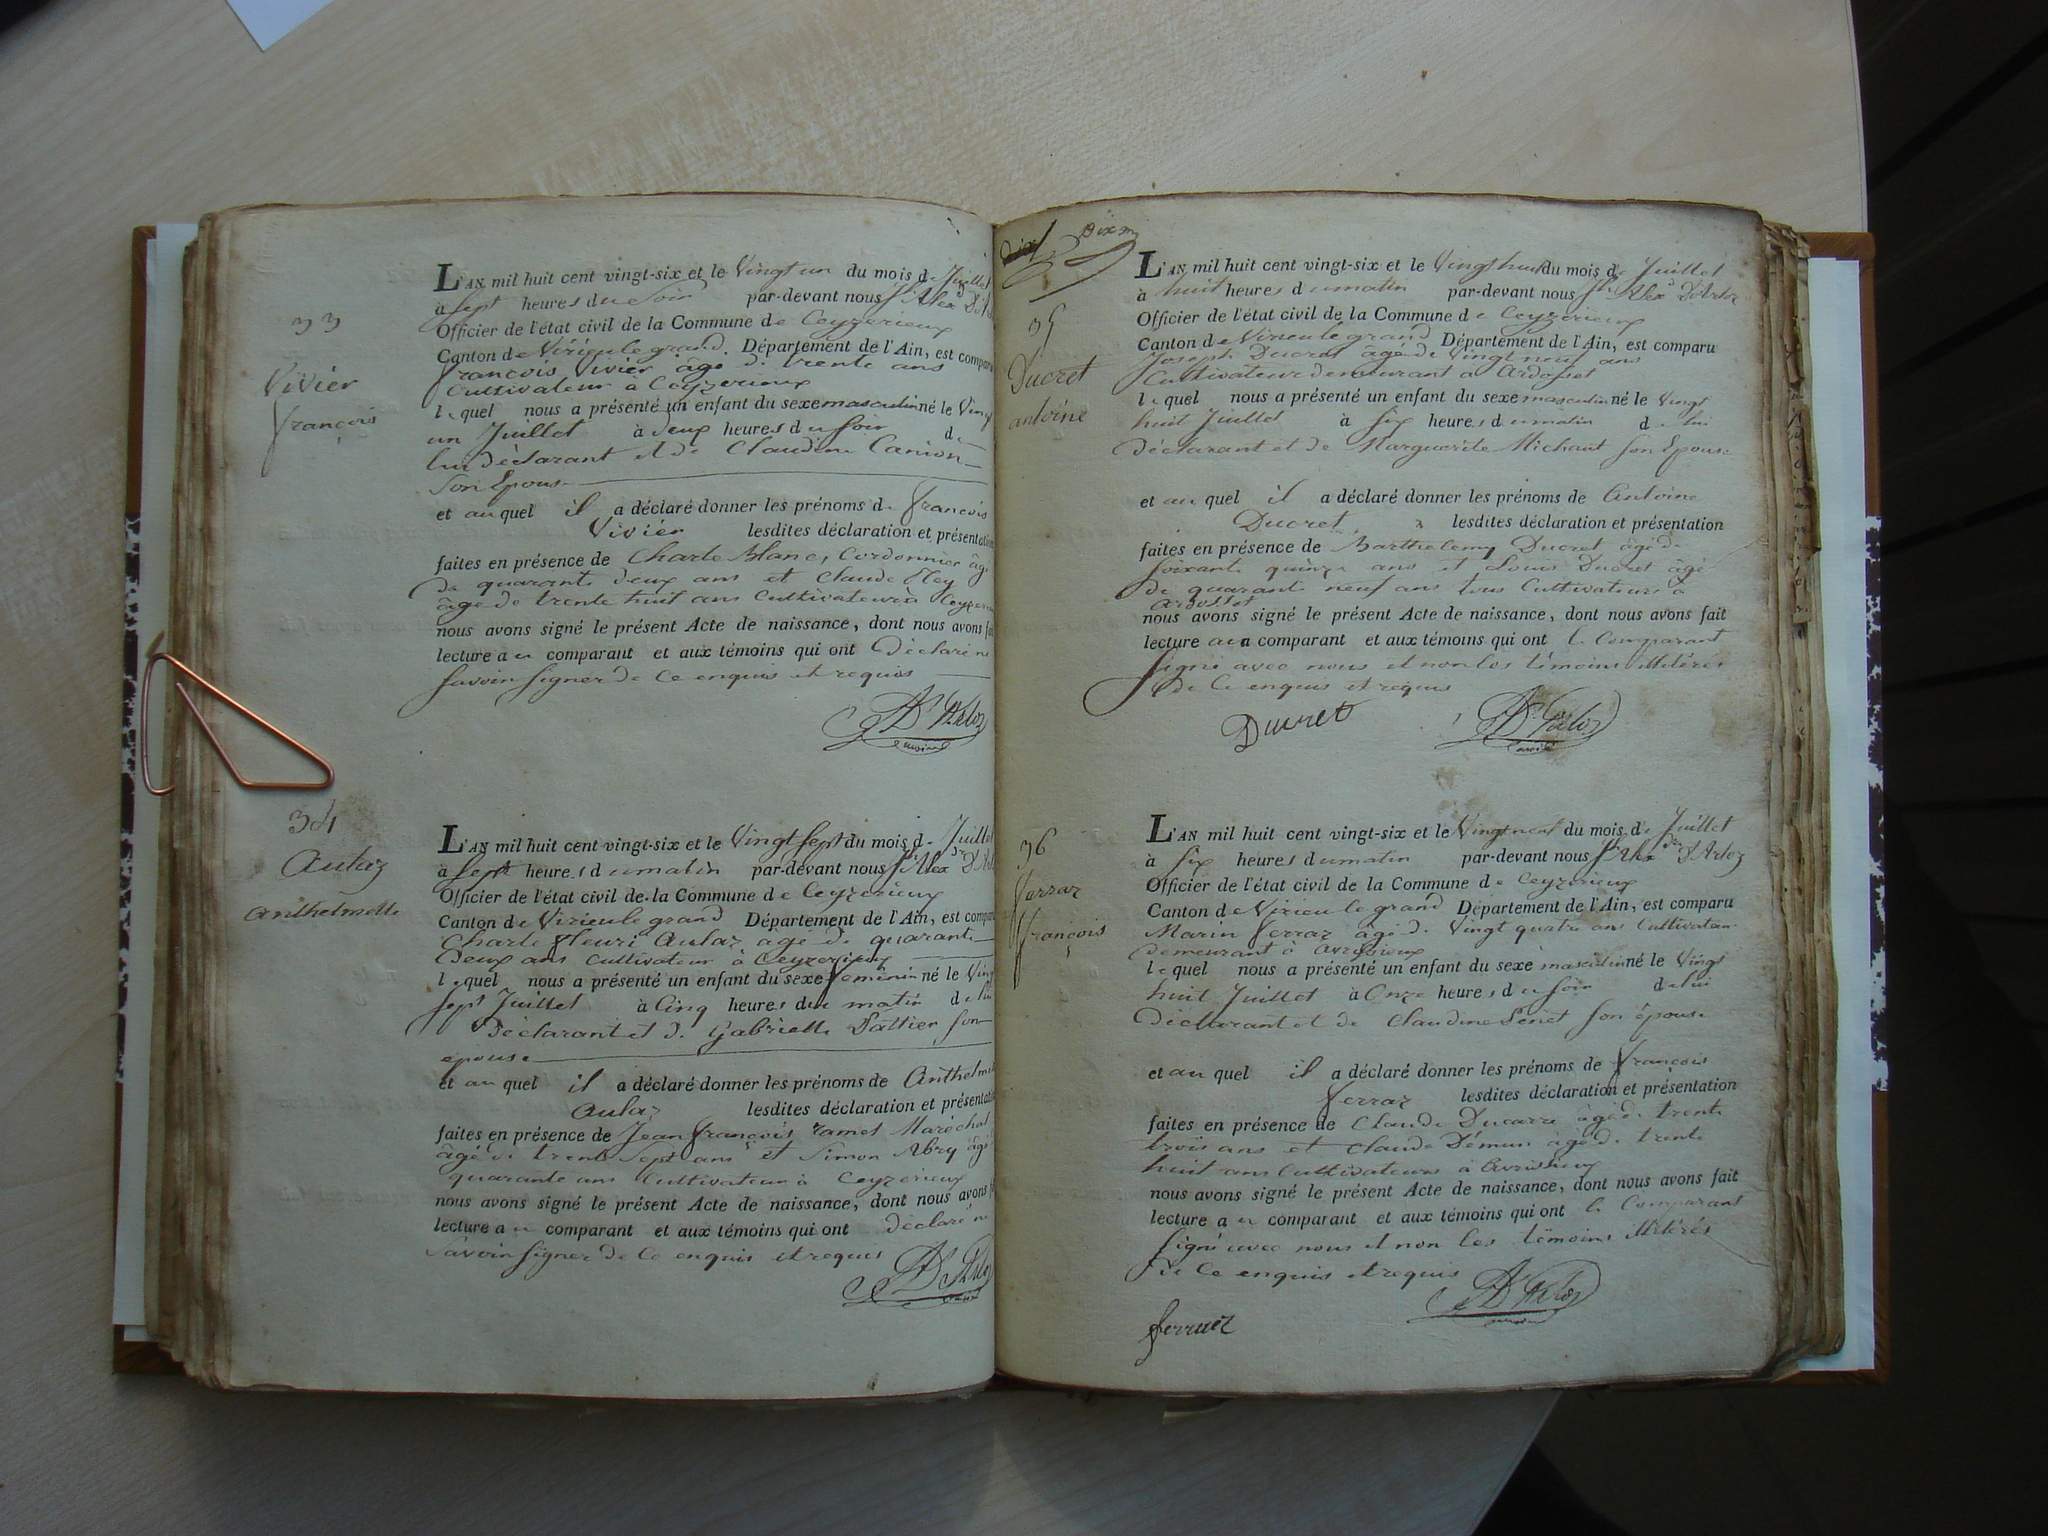 33
Vivier
françois
L'AN mil huit cent vingt-six et le Vingt un du mois de Juillet
à Sept heures du Soir par-devant nous Jh Alexd
Officier de l'état civil de la Commune de Ceyzerieux
Canton de Virieu le grand. Département de l'Ain, est comparu
françois Vivier âgé de trente ans
Cultivateur à Ceyzerieux
lequel nous a présenté un enfant du sexe masculin né le Vingt
un Juillet à deux heures du Soir de
lui déclarant et de Claudine Canion
Son Epouse
et au quel il a déclaré donner les prénoms de françois
Vivier lesdites déclaration et présentation
faites en présence de Charle Blanc, Cordonnier âgé
de quarante deux ans et Claude Rey
âgé de trente huit ans Cultivateur à Ceyzerieux
nous avons signé le présent Acte de naissance, dont nous avons fait
lecture au comparant et aux témoins qui ont Déclaré ne
Savoir Signer de Ce enquis et requis
34
Aulaz
Anthelmette
L'AN mil huit cent vingt-six et le Vingt Sept du mois de Juillet
à Sept heures du matin par-devant nous Jh Alexdre
Officier de l'état civil de la Commune de Ceyzerieux
Canton de Virieu le grand Département de l'Ain, est comparu
Charle fleuri Aulaz age de quarante
Deux ans Cultivateur à Ceyzerieux
lequel nous a présenté un enfant du sexe feminin né le Vingt
Sept Juillet à Cinq heures du matin de lui
Déclarant et de Gabrielle Pattier Son
epouse
et au quel il a déclaré donner les prénoms de Anthelmette
Aulaz lesdites déclaration et présentation
faites en présence de Jean françois ramel Maréchal
âgé de trente Sept ans et Simon Abry âgé
quarante ans Cultivateur à Ceyzerieux
nous avons signé le présent Acte de naissance, dont nous avons fait
lecture au comparant et aux témoins qui ont déclaré ne
Savoir Signer de Ce enquis et requis
35
Ducret
antoine
L'AN mil huit cent vingt-six et le Vingt huit du mois de Juillet
à huit heures du matin par-devant nous Jh Alexd D'Arloz
Officier de l'état civil de la Commune de Ceyzerieux
Canton de Virieu le grand Département de l'Ain, est comparu
Joseph Ducret âgé de Vingt neuf ans
Cultivateur demeurant a Ardosset
lequel nous a présenté un enfant du sexe masculin né le Vingt
huit Juillet à Six heures du matin de lui
Déclarant et de Marguerite Michaut Son Epouse
et au quel il a déclaré donner les prénoms de Antoine
Ducret lesdites déclaration et présentation
faites en présence de Barthelemy Ducret âgé de
Soixante quinze ans et Louis Ducret âgé
de quarante neuf ans tous Cultivateurs a
Ardosset
nous avons signé le présent Acte de naissance, dont nous avons fait
lecture au comparant et aux témoins qui ont le Comparant
Signé avec nous et non les témoins illitérés
de Ce enquis et requis
Ducret
36
ferraz
françois
L'AN mil huit cent vingt-six et le Vingt neuf du mois de Juillet
à Six heures du matin par-devant nous Jh Alexdre D'Arloz
Officier de l'état civil de la Commune de Ceyzerieux
Canton de Virieu le grand Département de l'Ain, est comparu
Marin ferraz âgé de Vingt quatre ans Cultivateur
demeurant à avrissieux
lequel nous a présenté un enfant du sexe masculin né le Vingt
huit Juillet à Onze heures du Soir de lui
Déclarant et de Claudine Son épouse
et au quel il a déclaré donner les prénoms de françois
ferraz lesdites déclaration et présentation
faites en présence de Claude Ducarre âgé de trente
trois ans et Claude Démun âgé de trente
huit ans Cultivateurs à avrissieux
nous avons signé le présent Acte de naissance, dont nous avons fait
lecture au comparant et aux témoins qui ont le Comparant
Signé avec nous et non les témoins illitérés
de Ce enquis et requis